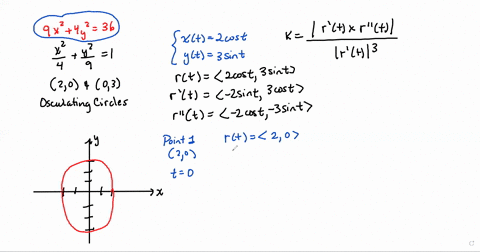 9x²+4y²=36
x²/4 + y²/9 = 1
(2,0) & (0,3)
Osculating Circles
{ x(t)=2cost
y(t)=3sint
r(t)=<2cost, 3sint>
r'(t)=<-2sint, 3cost>
r''(t)=<-2cost,-3sint>
K = |r'(t) x r''(t)| / |r'(t)|³
y
x
Point 1
(2,0)
t=0
r(t)=<2,0>